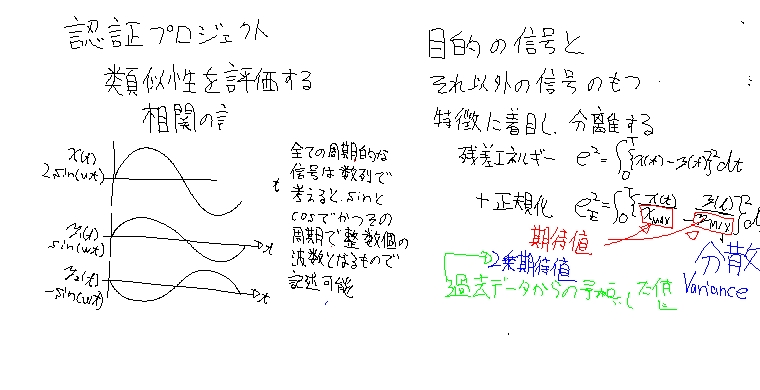 認証プロジェクト
類似性を評価する
相関の言
x(t)
2sin(wt)
t
y₁(t)
sin(wt)
t
y₂(t)
-sin(wt)
t
全ての周期的な
信号は数列で
考えると、sinと
cosでかつその
周期で整数個の
波数となるもので
記述可能
目的の信号と
それ以外の信号のもつ
特徴に着目し、分離する
残差エネルギー e²=∫₀ᵀ{x(t)-y(t)}²dt
+正規化
期待値
2乗期待値
分散
Variance
過去データからの